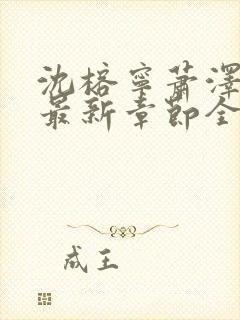 沈榕宁萧泽
最新章节全
成王